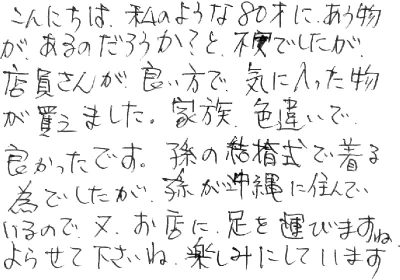 こんにちは、私のような80才に、あう物
があるのだろうか?と、不安でしたが、
店員さんが、良い方で、気に入った物
が買えました。家族、色違いで、
良かったです。孫の結婚式で着る
為でしたが、孫が沖縄に住んで、
いるので、又、お店に、足を運びますね、
よらせて下さいね、楽しみにしています